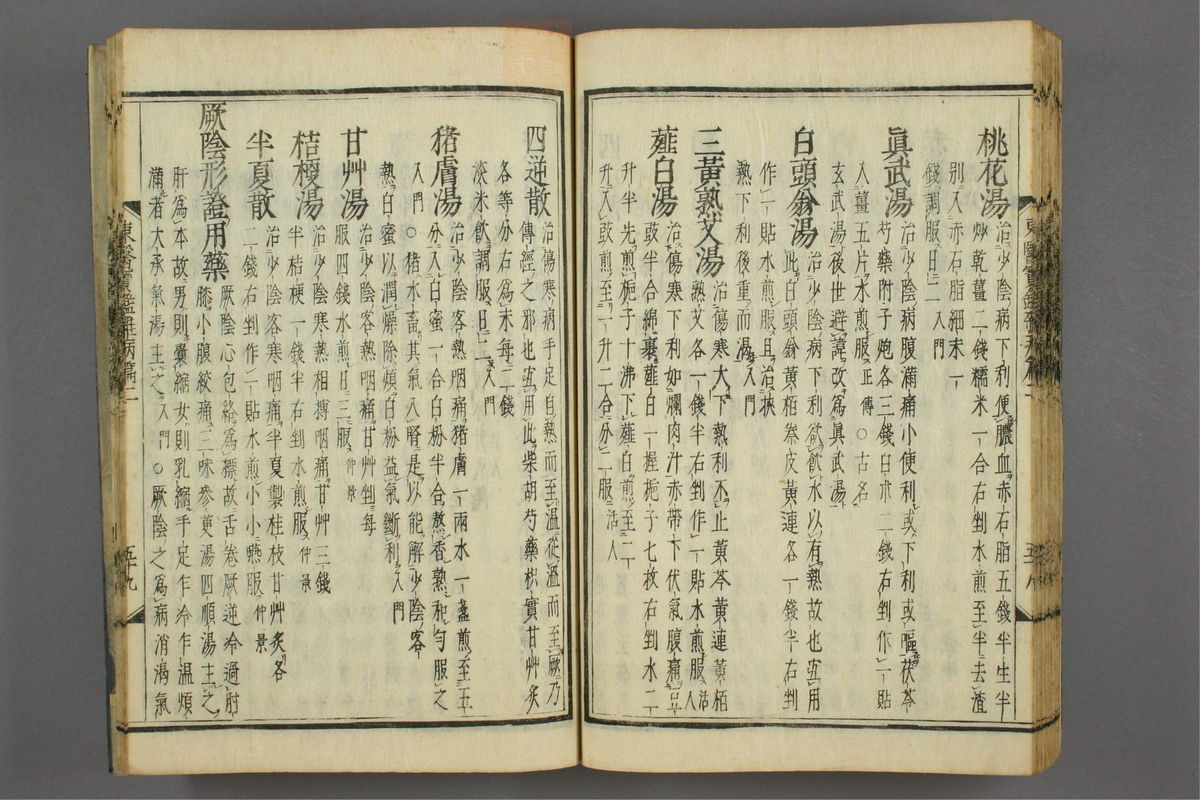 桃花湯治少陰病下利便膿血赤石脂五錢半生半
別入赤石脂細末一
炒乾薑二錢糯米一合右剉水煎至半去渣
錢調服日二入門
眞武湯治少陰病腹滿痛小便利或下利或嘔茯苓
芍藥附子炮各三錢白朮二錢右剉作一貼
入薑五片水煎服正傳○古名
玄武湯後世避諱改爲眞武湯
白頭翁湯治少陰病下利欲飮水以有熱故也宜用
此白頭翁黃栢秦皮黃連各一錢半右剉
作一貼水煎服且治挾
熱下利後重而渴入門
三黃熟艾湯治傷寒大下熱利不止黃芩黃連黃栢
熟艾各一錢半右剉作一貼水煎服活人
薤白湯治傷寒下利如爛肉汁赤帶下伏氣腹痛
豉半合綿裹薤白一握梔子七枚右剉水二
升半先煎梔子十沸下薤白煎至二
升入豉煎至一升二合分二服活人
四逆散治傷寒病手足自熱而至溫從溫而至厥乃
傳經之邪也宜用此柴胡芍藥枳實甘艸灸
各等分右爲末每二錢
淡米飮調服日二入門
猪膚湯治少陰客熱咽痛猪膚一兩水一盞煎至五
分入白蜜一合白粉半合熬香熟和勻服之
入門○猪水畜其氣入腎是以能解少陰客
熱白蜜以潤燥除煩白粉益氣斷利入門
甘艸湯治少陰客熱咽痛甘艸剉每
服四錢水煎日三服仲景
桔梗湯治少陰寒熱相搏咽痛甘艸三錢
半桔梗一錢半右剉水煎服仲景
半夏散治少陰客寒咽痛半夏製桂枝甘艸灸各
二錢右剉作一貼水煎小小嚥服仲景
厥陰形證用藥厥陰心包絡爲標故舌卷厥逆冷過肘
膝小腹絞痛三味參萸湯四順湯主之
肝爲本故男則囊縮女則乳縮手足乍冷乍溫煩
滿者大承氣湯主之入門○厥陰之爲病消渴氣
東醫寶鑑雜病篇二
五十九